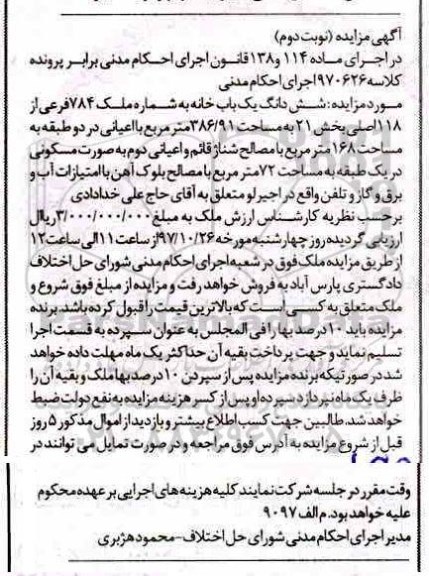 آگهی مزایده (نوبت دوم)
در اجرای ماده ۱۱۴ و ۱۳۸ قانون اجرای احکام مدنی برابر پرونده
کلاسه ۹۷۰۶۲۶ اجرای احکام مدنی
مورد مزایده: شش دانگ یک باب خانه به شماره ملک ۷۸۴ فرعی از
۱۱۸ اصلی بخش ۲۱ به مساحت ۳۸۶/۹۱ متر مربع با اعیانی در دو طبقه به
مساحت ۱۶۸ متر مربع با مصالح شناژ قائم و اعیانی دوم به صورت مسکونی
در یک طبقه به مساحت ۷۲ متر مربع با مصالح بلوک آهن با امتیازات آب و
برق و گاز و تلفن واقع در اجیرلو متعلق به آقای حاج علی خدادادی
برحسب نظریه کارشناس ارزش ملک به مبلغ ۳/۰۰۰/۰۰۰/۰۰۰ ریال
ارزیابی گردیده روز چهارشنبه مورخه ۹۷/۱۰/۲۶ از ساعت ۱۱ الی ساعت ۱۲
از طریق مزایده ملک فوق در شعبه اجرای احکام مدنی شورای حل اختلاف
دادگستری پارس آباد به فروش خواهد رفت و مزایده از مبلغ فوق شروع و
ملک متعلق به کسی است که بالاترین قیمت را قبول کرده باشد. برنده
مزایده باید ۱۰ درصد بها را فی المجلس به عنوان سپرده به قسمت اجرا
تسلیم نماید و جهت پرداخت بقیه آن حداکثر یک ماه مهلت داده خواهد
شد در صورتیکه برنده مزایده پس از سپردن ۱۰ درصد بها ملک و بقیه آن را
ظرف یک ماه نپردازد سپرده او پس از کسر هزینه مزایده به نفع دولت ضبط
خواهد شد. طالبین جهت کسب اطلاع بیشتر و بازدید از اموال مذکور ۵ روز
قبل از شروع مزایده به آدرس فوق مراجعه و در صورت تمایل می توانند در
وقت مقرر در جلسه شرکت نمایند کلیه هزینه های اجرایی بر عهده محکوم
علیه خواهد بود. م الف ۹۰۹۷
مدیر اجرای احکام مدنی شورای حل اختلاف - محمود هژبری